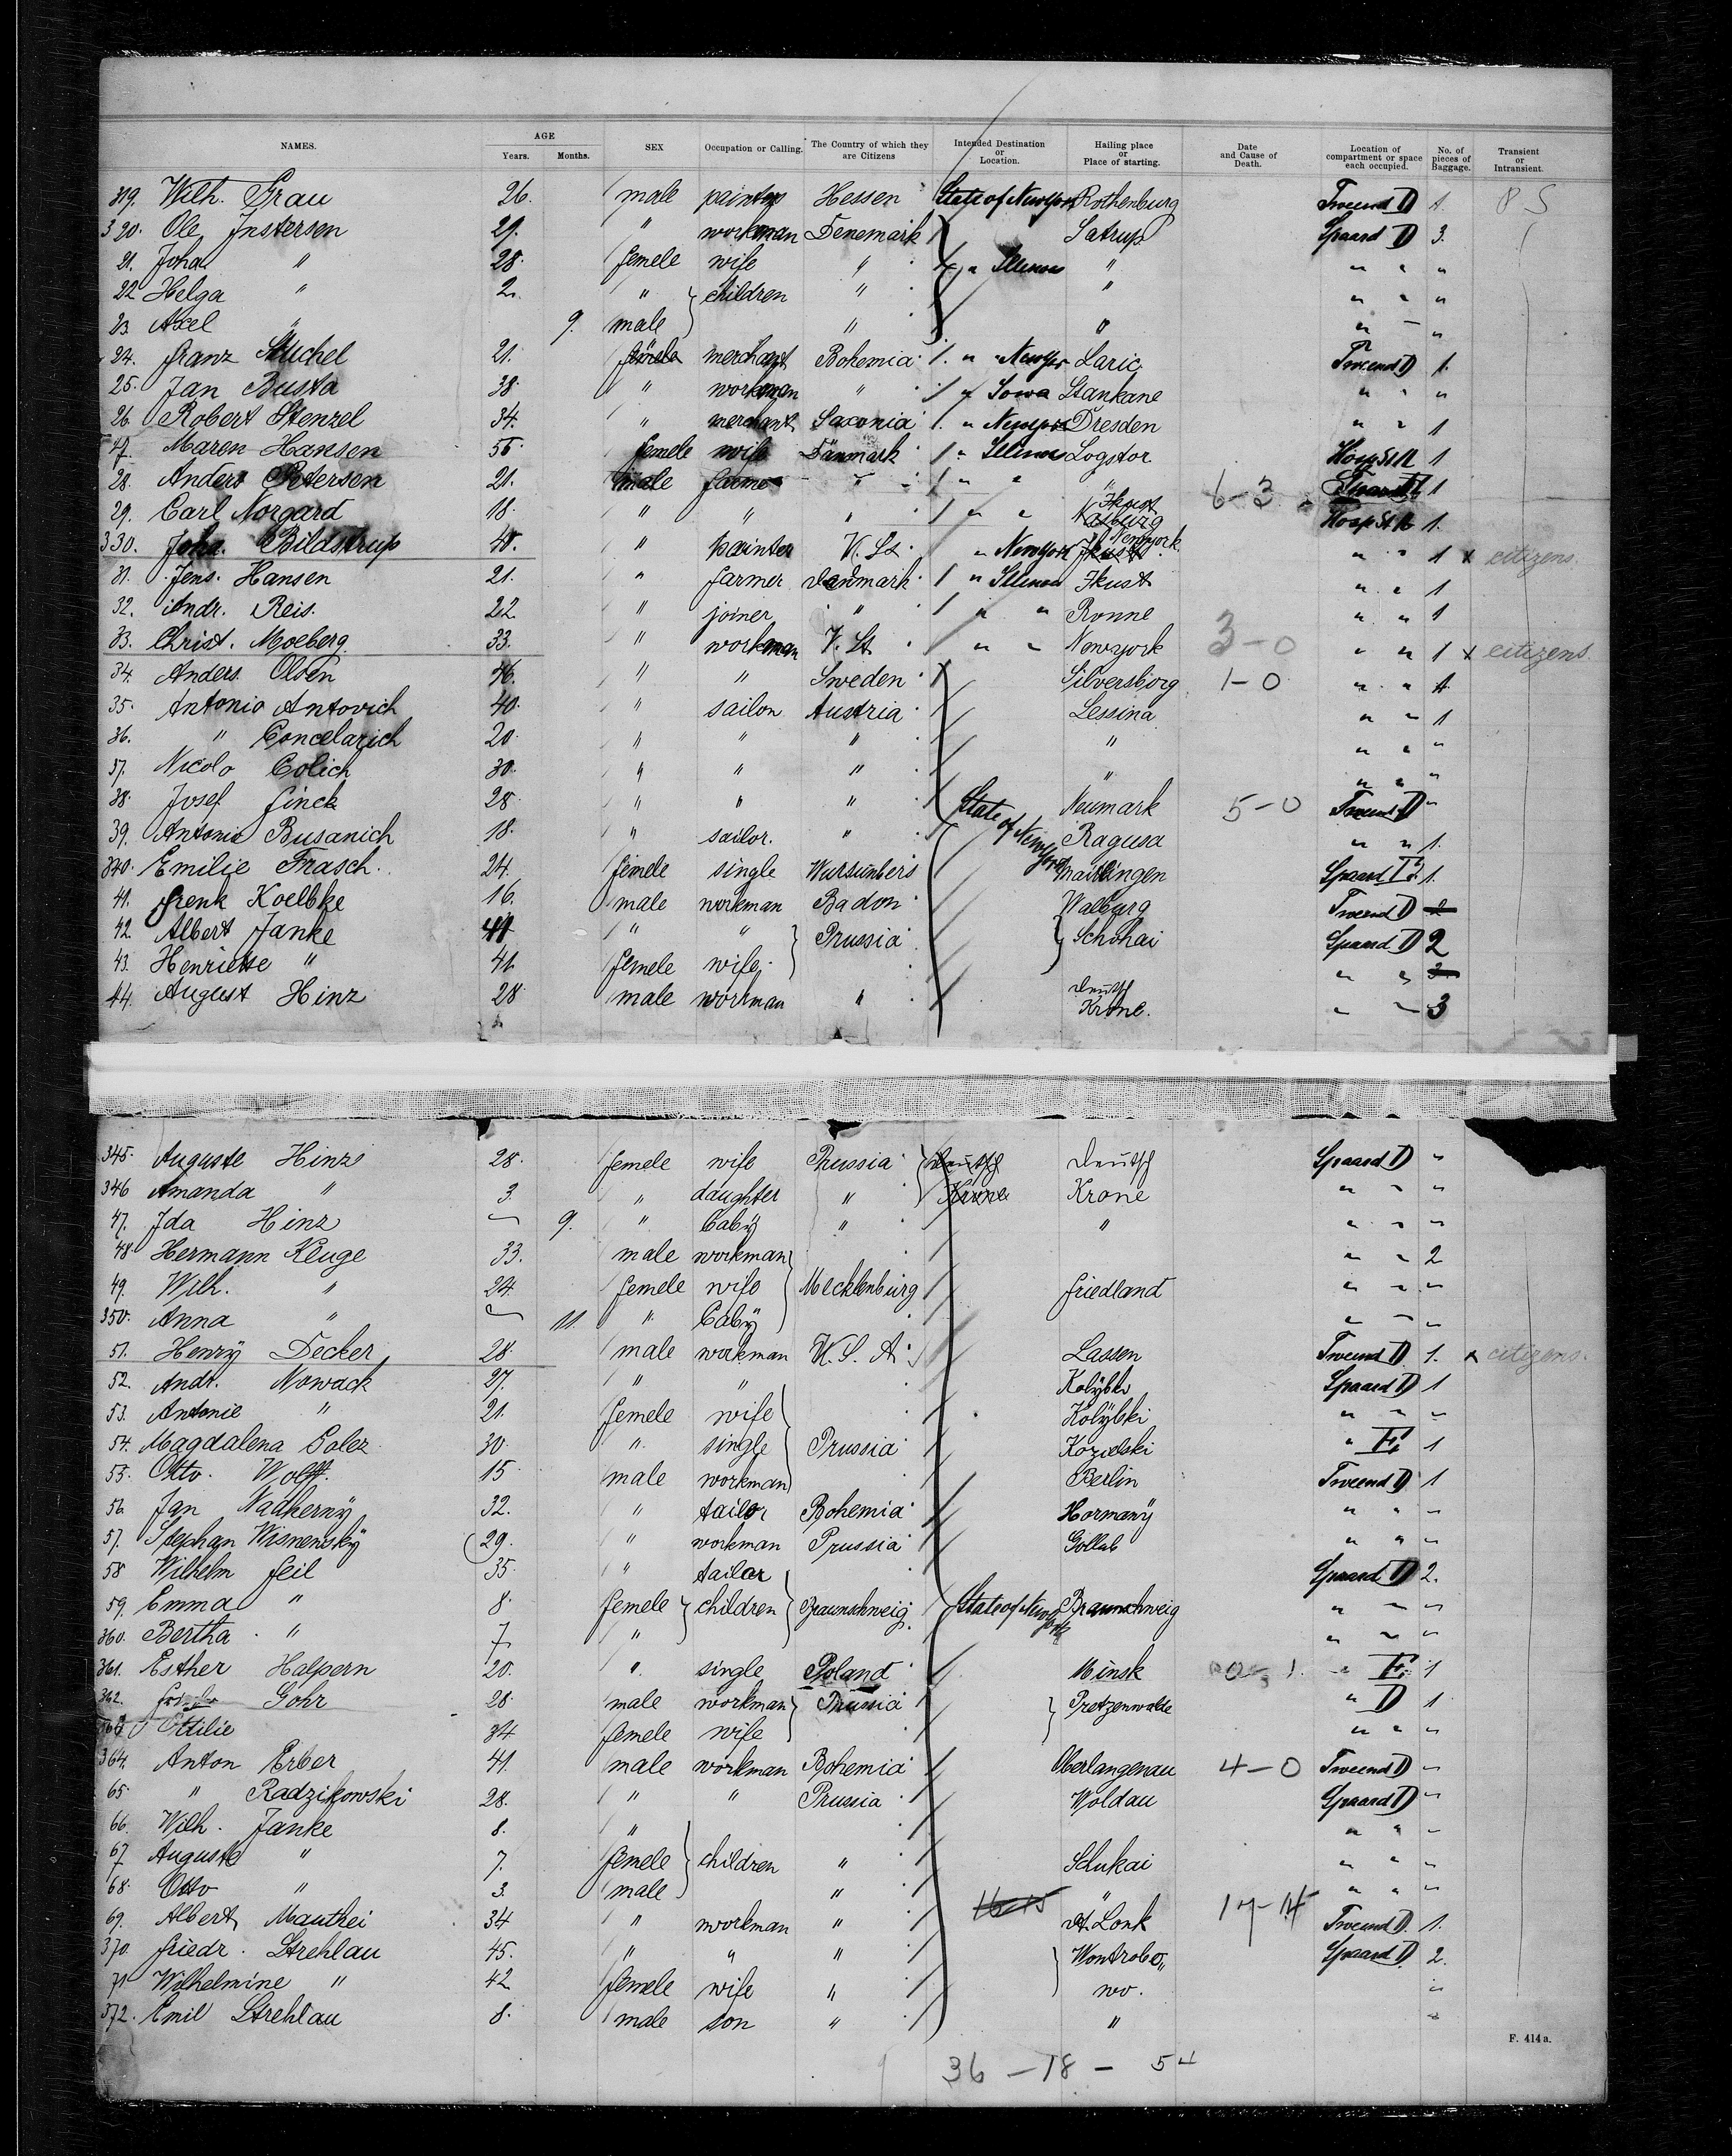 NAMES. AGE Years. Months. SEX Occupation or Calling. The Country of which they are Citizens Intended Destination or Location. Hailing place or Place of starting. Date and Cause of Death. Location of compartment or space each occupied. No. of pieces of Baggage. Transient or Intransient.
319. Wilh. Grau 26. male painter Hessen State of Newyork Rothenburg Tweend D 1. 8 S
320. Ole Instersen 29. " workman Denemark Satrup Spaard D 3.
21. Joha " 28. femele wife " " Illinois " " " "
22 Helga " 2. " children " " " " "
23. Axel " 9. male " " " "
24. Franz Stuchel 21. merchant Bohemia 1. " Newyor Laric Tweend D 1.
25. Jan Busta 38. " workman " 1 " Iowa Stankane " " "
26. Robert Stenzel 34. " merchant Saxonia 1. " Newyork Dresden " " 1
27. Maren Hansen 55 femele wife Dänmark 1 " Illinois Logstor Hosp St R 1
28. Anders Petersen 21. male farmer " 1 " " " 6-3 1
29. Carl Norgard 18. " " " 1 " " Hosp St R 1.
330. Joha. Bildstrup " painter V. St. " Newyork Newyork " " 1 x citizens.
31. Jens. Hansen 21. " farmer Danmark 1 " Illinois Ikust " " 1
32. Andr. Reis. 22 " joiner " 1 " " Ronne " " 1
33. Christ. Moeberg 33. " workman V. St. " " Newyork 3-0 " " 1 x citizens
34. Anders Olsen 46. " " Sweden Silversborg 1-0 " " 1.
35. Antonio Antovich 40. " sailon Austria Lessina " " 1
36. " Concelarich 20. " " " " " " "
37. Nicolo Colich 30. " " " " " " "
38. Josef Finck 28. " " " State of Newyork Neumark 5-0 Tweend D "
39. Antonio Busanich 18. " sailor. " Ragusa " " 1.
340. Emilie Frasch. 24. femele single Spaard E. 1.
41. Frenk Koelbke 16. male workman Badon Walburg Tweend D
42. Albert Janke 41 " " Prussia Schohai Spaard D 2
43. Henriette " 41 femele wife. " "
44. August Hinz 28 male workman " Deutsch Krone. " " 3
345. Auguste Hinz 28. femele wife Prussia Deutsch Deutsch Spaard D "
346 Amanda " 3. " daughter " Krone Krone " " "
47. Ida Hinz 9. " Baby " " " " "
48. Hermann Kluge 33. male workman " " 2
49. Wilh. " 24 femele wife Mecklenburg Friedland " " "
350. Anna " 11. " Baby " " "
51. Henry Decker 28. male workman U. S. A. Lassen Tweend D. 1. x citizens.
52. Andr. Nowack 27. " " Spaard D 1
53. Antonie " 21. femele wife Kolÿbki " " "
54. Magdalena Golez 30. " single Prussia Kozielski " E. 1
55. Otto. Wolff. 15. male workman Berlin Tweend D 1
56. Jan Nadhernÿ 32. " tailor Bohemia Hormanÿ " " "
57. Stephan Wisnenskÿ 29. " workman Prussia Gollab " " "
58 Wilhelm Feil 35. " tailor Spaard D 2.
59. Emma " 8. femele children Braunschweig State of Newyork Braunschweig " " "
360. Bertha " 7. " " " "
361. Esther Halpern 20. " single Poland Minsk 0-1. " E. 1
362. Gohr 28. male workman Prussia Pretzenwalde " D 1
363 Ottilie 34 femele wife " " "
364. Anton Erber 41. male workman Bohemia Oberlangenau 4-0 Tweend D "
65. " Radzikowski 28. " " Prussia Woldau Spaard D "
66. Wilh. Janke 8. " " " "
67 Auguste " 7. femele children " Schukai " " "
68. Otto " 3. male " " " " "
69. Albert Manthei 34 " workman " 16-15 St. Lonk 17-14 Tweend D. 1.
370. Friedr. Strehlau 45. " " " Spaard D 2.
71 Wilhelmine " 42 femele wife " wo. "
372. Emil Strehlau 8. male son " " "
F. 414 a.
36 - 18 - 54